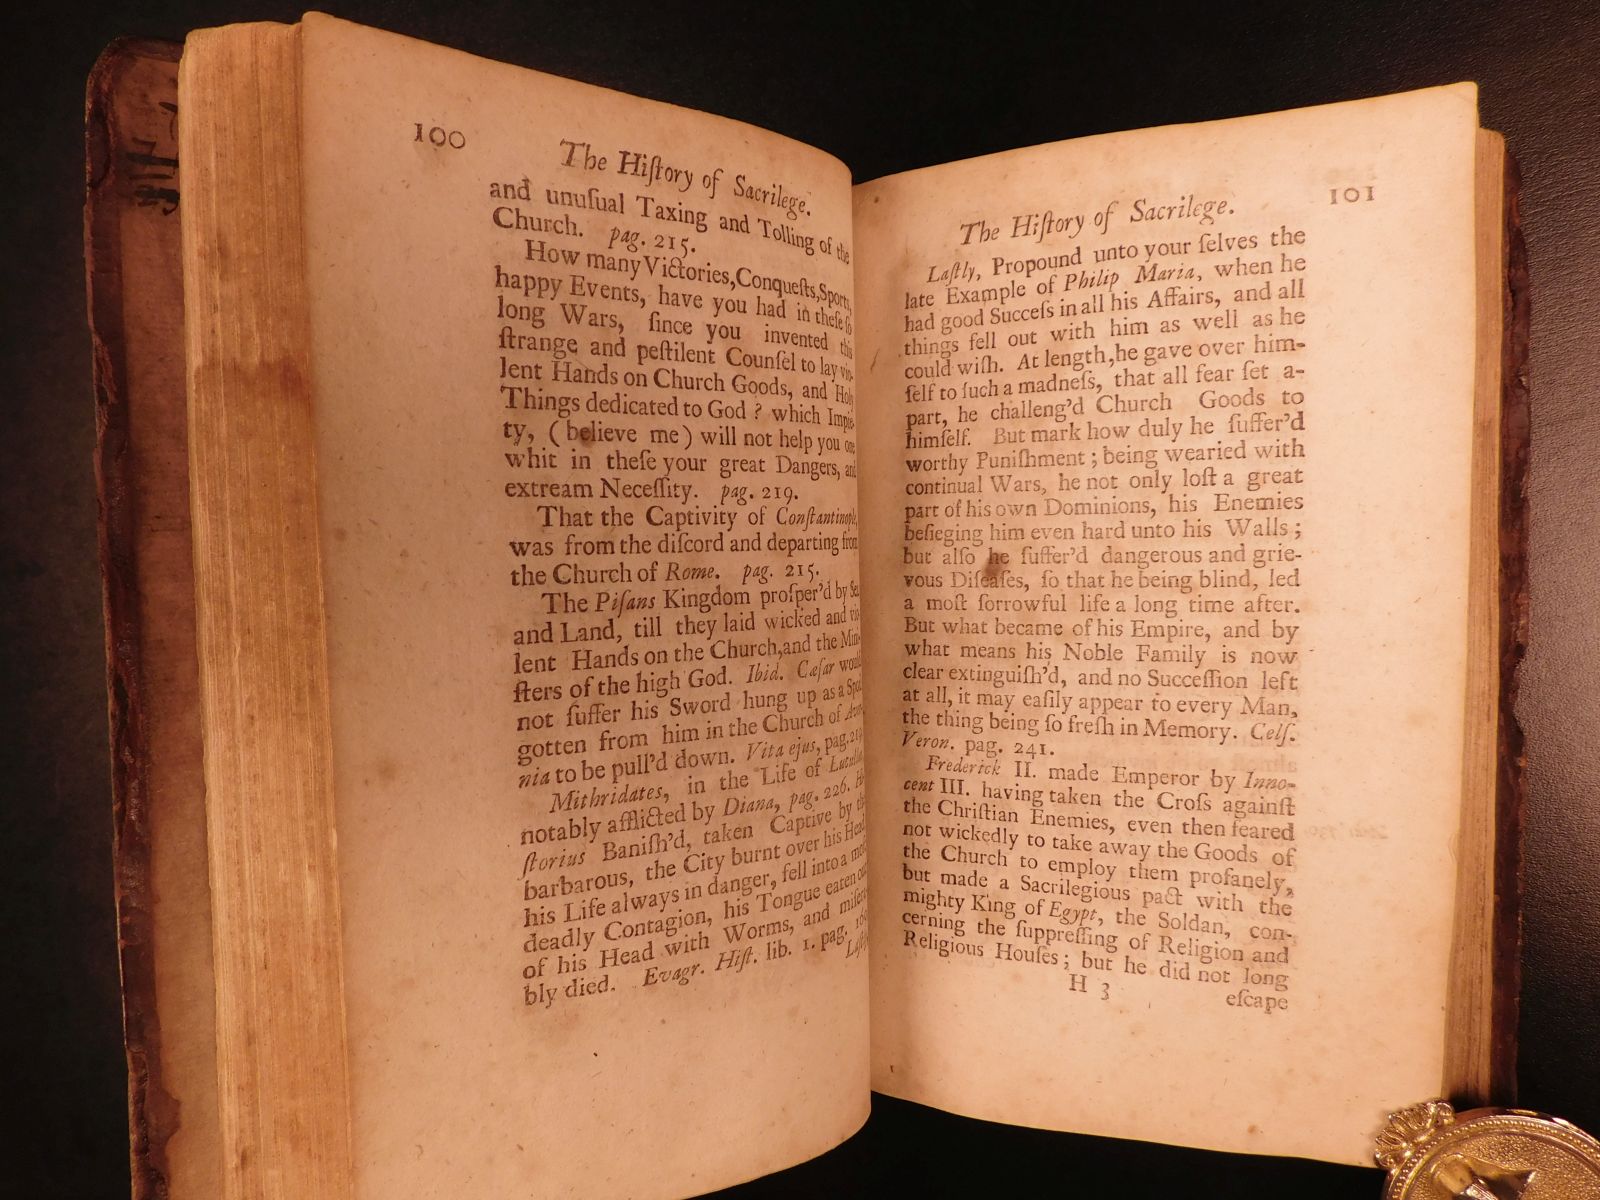 100
The Hiſtory of Sacrilege.
and unuſual Taxing and Tolling of the
Church. pag. 215.
How many Victories, Conqueſts, Sports,
happy Events, have you had in theſe ſo
long Wars, ſince you invented this
ſtrange and peſtilent Counſel to lay vio-
lent Hands on Church Goods, and Holy
Things dedicated to God ? which Impie-
ty, ( believe me ) will not help you one
whit in theſe your great Dangers, and
extream Neceſſity. pag. 219.
That the Captivity of Conſtantinople,
was from the diſcord and departing from
the Church of Rome. pag. 215.
The Piſans Kingdom proſper'd by Sea
and Land, till they laid wicked and vio-
lent Hands on the Church, and the Mini-
ſters of the high God. Ibid. Cæſar would
not ſuffer his Sword hung up as a Spoil
gotten from him in the Church of
nia to be pull'd down. Vita ejus, pag. 219.
Mithridates, in the Life of Lucullus,
notably afflicted by Diana, pag. 226.
ſtorius Baniſh'd, taken Captive by the
barbarous, the City burnt over his Head,
his Life always in danger, fell into a moſt
deadly Contagion, his Tongue eaten out
of his Head with Worms, and miſera-
bly died. Evagr. Hiſt. lib. 1. pag.
Laſtly,
101
The Hiſtory of Sacrilege.
Laſtly, Propound unto your ſelves the
late Example of Philip Maria, when he
had good Succeſs in all his Affairs, and all
things fell out with him as well as he
could wiſh. At length, he gave over him-
ſelf to ſuch a madneſs, that all fear ſet a-
part, he challeng'd Church Goods to
himſelf. But mark how duly he ſuffer'd
worthy Puniſhment ; being wearied with
continual Wars, he not only loſt a great
part of his own Dominions, his Enemies
beſieging him even hard unto his Walls ;
but alſo he ſuffer'd dangerous and grie-
vous Diſeaſes, ſo that he being blind, led
a moſt ſorrowful life a long time after.
But what became of his Empire, and by
what means his Noble Family is now
clear extinguiſh'd, and no Succeſſion left
at all, it may eaſily appear to every Man,
the thing being ſo freſh in Memory. Celſ.
Veron. pag. 241.
Frederick II. made Emperor by Inno-
cent III. having taken the Croſs againſt
the Chriſtian Enemies, even then feared
not wickedly to take away the Goods of
the Church to employ them profanely,
but made a Sacrilegious pact with the
mighty King of Egypt, the Soldan, con-
cerning the ſuppreſſing of Religion and
Religious Houſes ; but he did not long
H 3
eſcape